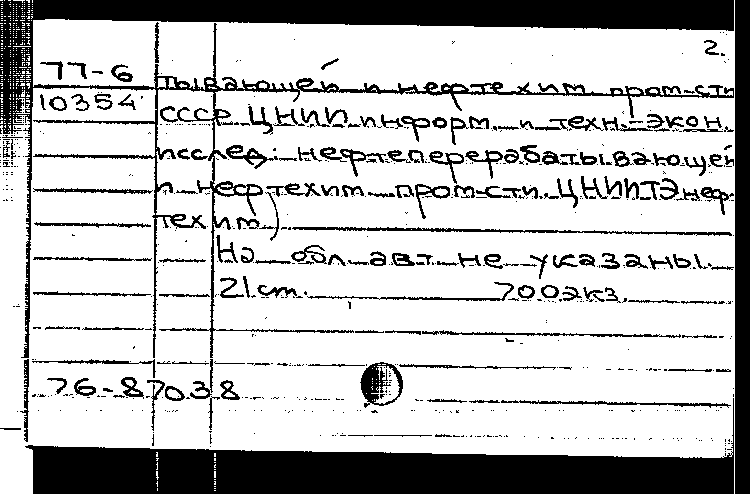 2.
77-6 тывающей и нефтехим. пром-сти
10354 СССР. ЦНИИ информ. и техн.-экон.
исслед. нефтеперерабатывающей
и нефтехим. пром-сти. ЦНИИТЭнеф-
техим)
На обл. авт. не указаны.
21 cm. 700экз.
76-87038